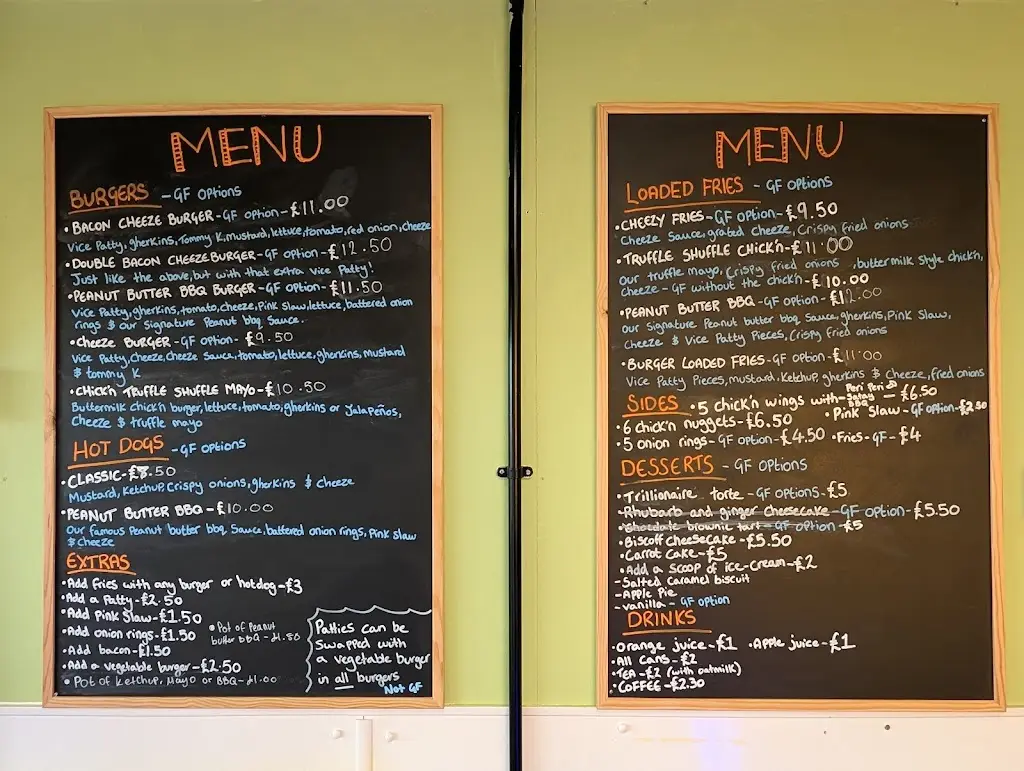 MENU
BURGERS - GF options
• BACON CHEEZE BURGER - GF option - £11.00
Vice Patty, gherkins, Tommy K, mustard, lettuce, tomato, red onion, cheeze
• DOUBLE BACON CHEEZEBURGER - GF option - £12.50
Just like the above, but with that extra Vice Patty!
• PEANUT BUTTER BBQ BURGER - GF option - £11.50
Vice Patty, gherkins, tomato, cheeze, Pink Slaw, lettuce, battered onion
rings & our Signature Peanut bbq Sauce.
• Cheeze BURGER - GF option - £9.50
Vice Patty, cheeze, cheeze Sauce, tomato, lettuce, gherkins, Mustard
& tommy K
• CHICK'N TRUFFLE SHUFFLE MAYO - £10.50
Buttermilk chick'n burger, lettuce, tomato, gherkins or Jalapeños,
Cheeze & truffle mayo
HOT DOGS - GF options
• CLASSIC - £8.50
Mustard, Ketchup, Crispy onions, gherkins & cheeze
• PEANUT BUTTER BBQ - £10.00
Our famous Peanut butter bbq Sauce, battered onion rings, Pink slaw
& Cheeze
EXTRAS
• Add fries with any burger or hotdog - £3
• Add a Patty - £2.50
• Add Pink Slaw - £1.50
• Add onion rings - £1.50
• Add bacon - £1.50
• Add a vegetable burger - £2.50
• Pot of Ketchup, Mayo or BBQ - £1.00
• Pot of Peanut
butter BBQ - £1.80
Patties can be
Swapped with
a vegetable burger
in all burgers
Not GF
MENU
LOADED FRIES - GF options
• CHEEZY FRIES - GF option - £9.50
Cheeze Sauce, grated Cheeze, Crispy fried onions
• TRUFFLE SHUFFLE CHICK'N - £11.00
Our truffle mayo, Crispy fried onions, buttermilk style chick'n,
Cheeze - GF without the chick'n - £10.00
• PEANUT BUTTER BBQ - GF option - £12.00
Our signature Peanut butter bbq Sauce, gherkins, Pink Slaw,
Cheeze & Vice Patty Pieces, Crispy fried onions
• BURGER LOADED FRIES - GF option - £11.00
Vice Patty Pieces, mustard, Ketchup, gherkins & Cheeze, fried onions
SIDES • 5 chick'n wings with - Peri Peri Satay BBQ - £6.50
• 6 chick'n nuggets - £6.50 • Pink Slaw - GF option - £2.50
• 5 onion rings - GF option - £4.50 • Fries - GF - £4
DESSERTS - GF options
• Trillionaire torte - GF options - £5
• Rhubarb and ginger cheesecake - GF option - £5.50
• Chocolate brownie tart - GF option - £5
• Biscoff cheesecake - £5.50
• Carrot Cake - £5
• Add a scoop of ice-cream - £2
- Salted Caramel biscuit
- Apple Pie
- vanilla - GF option
DRINKS
• Orange juice - £1 • Apple juice - £1
• All Cans - £2
• TEA - £2 (with oatmilk)
• COFFEE - £2.30